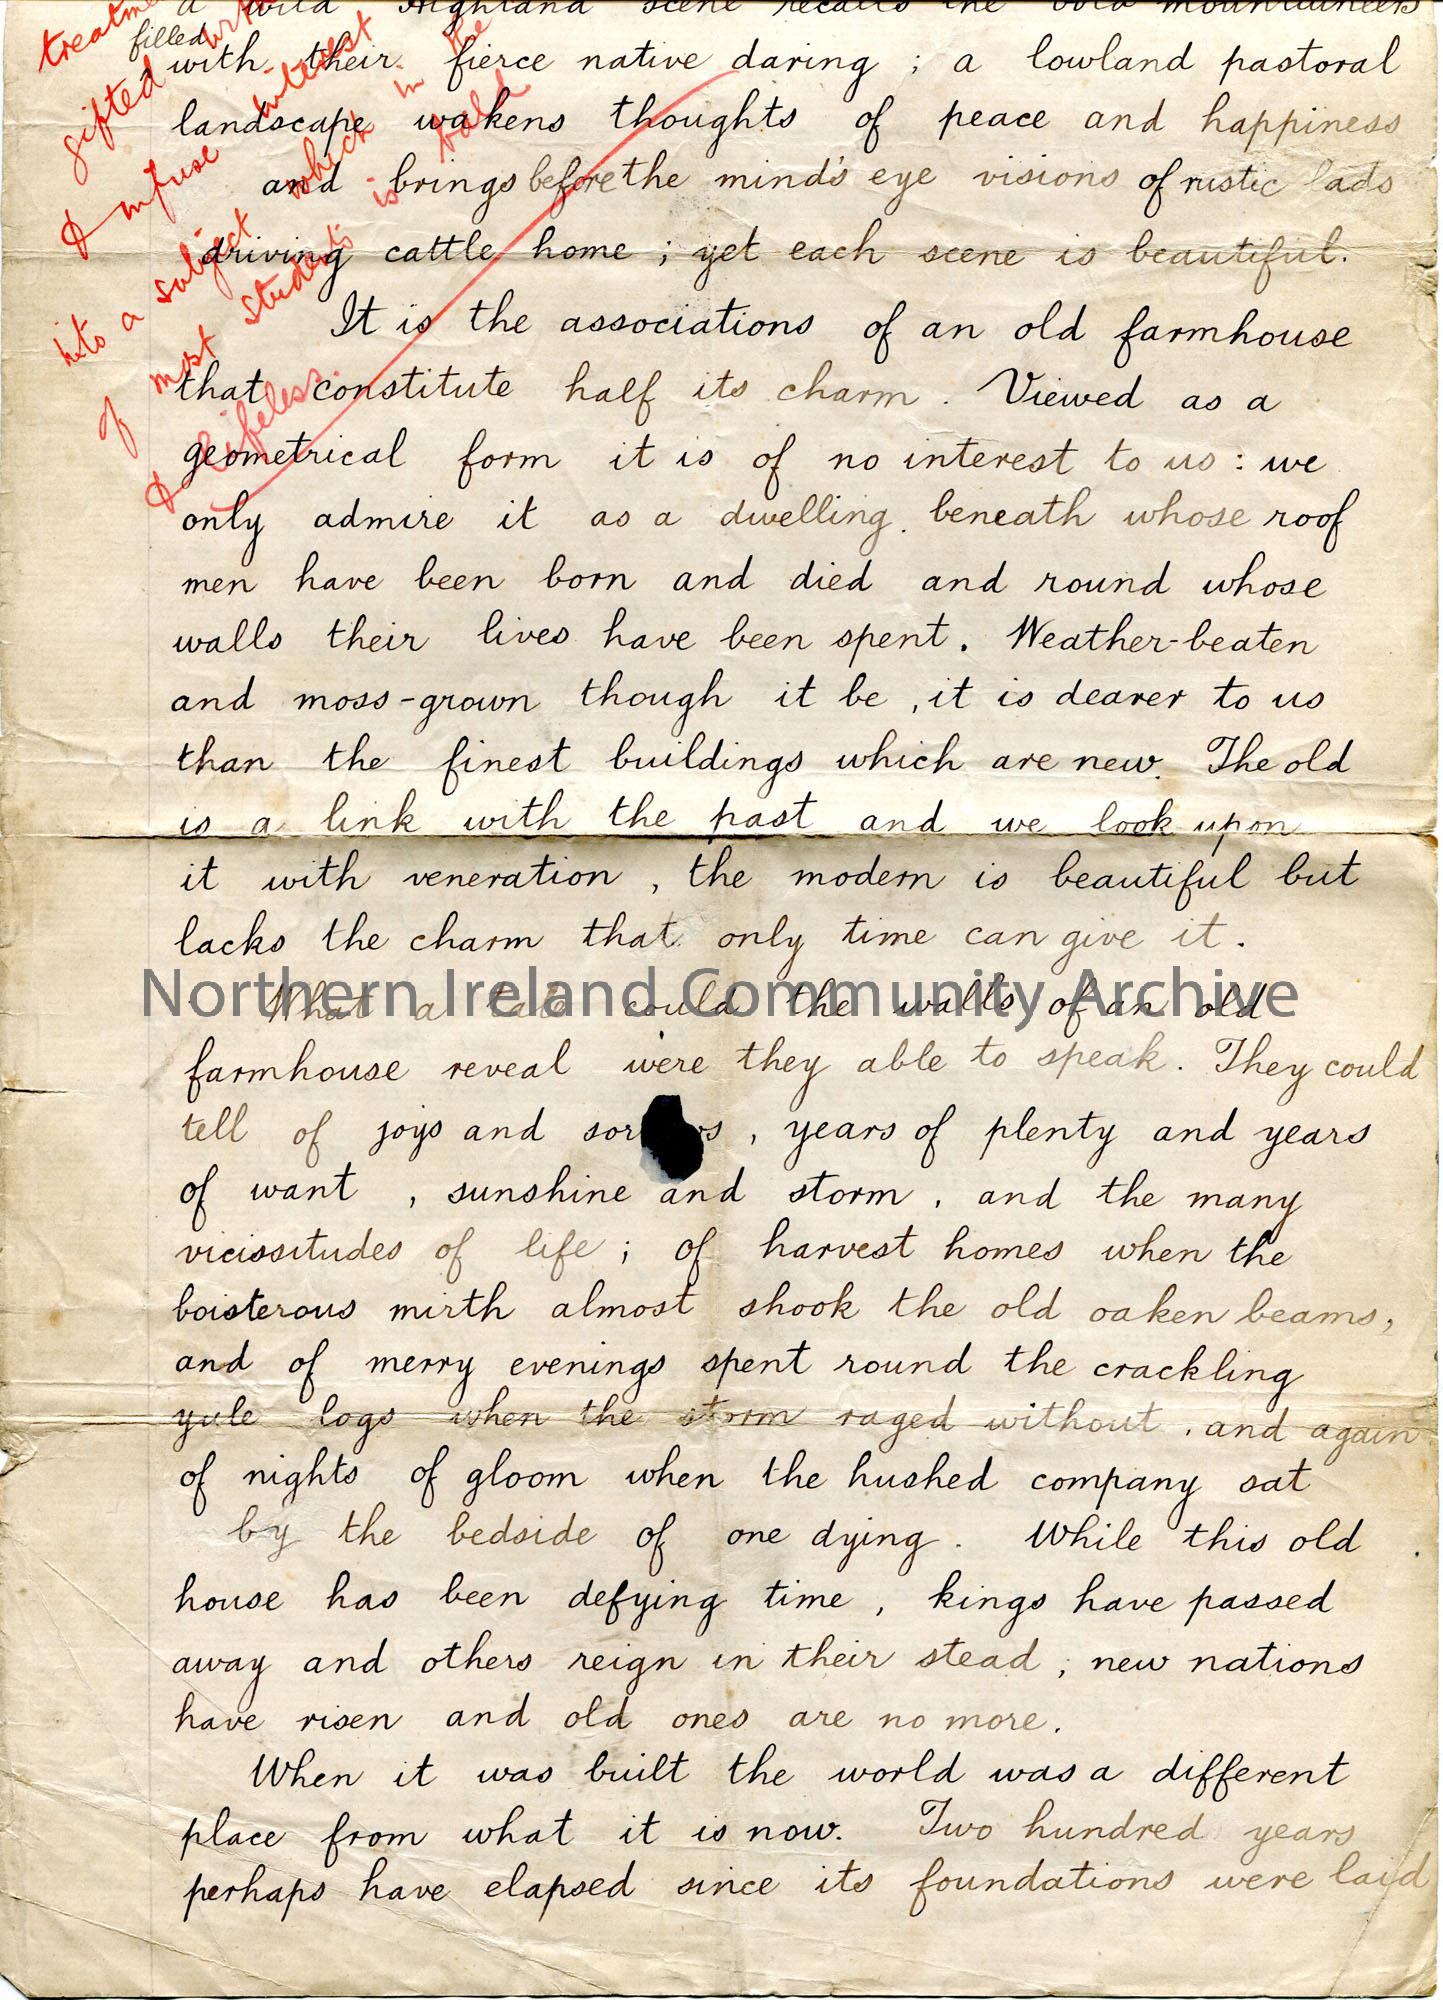 a wild Highland scene recalls the bold mountaineers
filled
with their fierce native daring ; a lowland pastoral
landscape wakens thoughts of peace and happiness
and brings before the mind's eye visions of rustic lads
driving cattle home ; yet each scene is beautiful.
It is the associations of an old farmhouse
that constitute half its charm . Viewed as a
geometrical form it is of no interest to us : we
only admire it as a dwelling beneath whose roof
men have been born and died and round whose
walls their lives have been spent . Weather-beaten
and moss-grown though it be , it is dearer to us
than the finest buildings which are new. The old
is a link with the past and we look upon
it with veneration , the modern is beautiful but
lacks the charm that only time can give it .
What a tale could the walls of an old
farmhouse reveal were they able to speak . They could
tell of joys and sor s , years of plenty and years
of want , sunshine and storm , and the many
vicissitudes of life ; of harvest homes when the
boisterous mirth almost shook the old oaken beams,
and of merry evenings spent round the crackling
yule logs when the storm raged without , and again
of nights of gloom when the hushed company sat
by the bedside of one dying . While this old
house has been defying time , kings have passed
away and others reign in their stead ; new nations
have risen and old ones are no more .
When it was built the world was a different
place from what it is now. Two hundred years
perhaps have elapsed since its foundations were laid
gifted
& infuse interest
into a subject which in the
of most students is bald
& lifeless.
Northern Ireland Community Archive